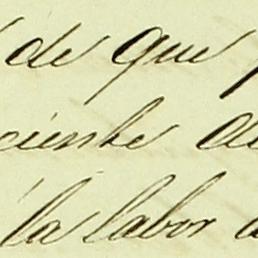 de que
ciente
la labor